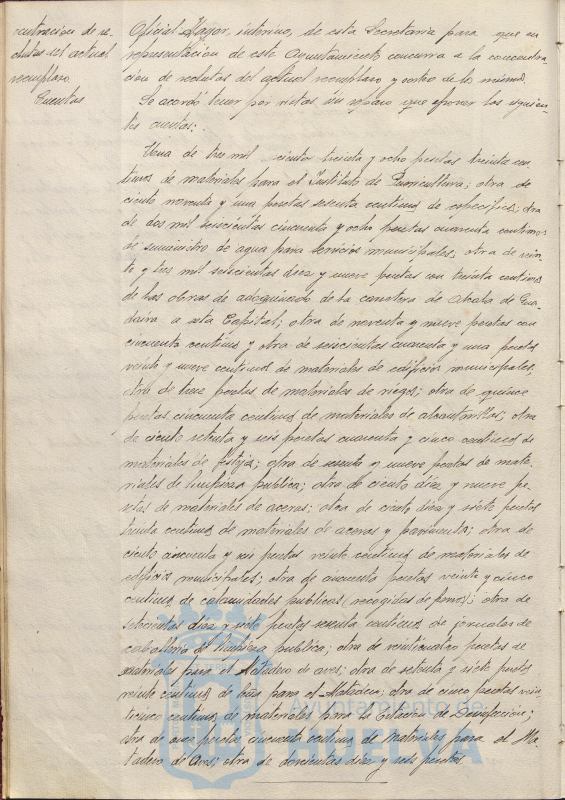 centración de re-
clutas del actual
reemplazo
Cuentas
Oficial Mayor, interino, de esta Secretaria para que en
representación de este Ayuntamiento concurra a la concentra-
ción de reclutas del actual reemplazo y sorteo de la misma
Se acordó tener por vistas sin reparo que oponer las siguien-
tes cuentas:
Una de tres mil ciento treinta y ocho pesetas treinta cen
timos de materiales para el Instituto de Puericultura; otra de
ciento noventa y una pesetas sesenta centimos de especificos; otra
de dos mil seiscientas cincuenta y ocho pesetas cuarenta centimos
de suministro de agua para servicios municipales, otra de vein-
te y tres mil seiscientas diez y nueve pesetas con treinta centimos
de las obras de adoquinado de la carretera de Alcala de Gua-
daira a esta Capital; otra de noventa y nueve pesetas con
cincuenta centimos y otra de seiscientas cuarenta y una pesetas
veinte y nueve centimos de materiales de edificios municipales,
otra de trece pesetas de materiales de riegos; otra de quince
pesetas cincuenta centimos de materiales de alcantarillas; otra
de ciento setenta y seis pesetas cuarenta y cinco centimos de
materiales de festejos; otra de sesenta y nueve pesetas de mate-
riales de limpieza publica; otra de ciento diez y nueve pe-
setas de materiales de aceras; otra de ciento diez y siete pesetas
treinta centimos de materiales de aceras y pavimento; otra de
ciento cincuenta y seis pesetas veinte centimos de materiales de
edificios municipales; otra de cincuenta pesetas veinte y cinco
centimos de calamidades publicas (recogidas de perros); otra de
setecientas diez y siete pesetas sesenta centimos de jornales de
caballerias de limpieza publica; otra de veinticuatro pesetas de
materiales para el Matadero de aves; otra de setenta y siete pesetas
veinte centimos de para el Matadero; otra de cinco pesetas vein
ticinco centimos de materiales para la Estación de Desinfección;
otra de once pesetas cincuenta centimos de materiales para el Ma-
tadero de Aves; otra de doscientas diez y seis pesetas
Ayuntamiento de
HUELVA